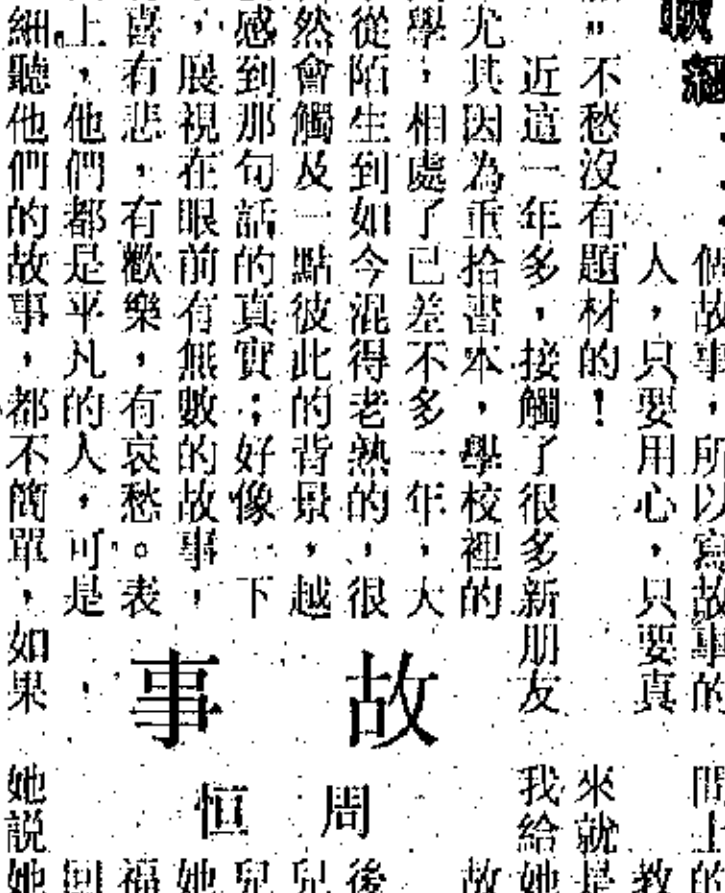 個故事，所以寫故事的
人，只要用心，只要真
。不愁沒有題材的！
近這一年多，接觸了很多新朋友
尤其因為重拾書本，學校裡的
學，相處了已差不多一年，大
從陌生到如今混得老熟的，很
然會觸及一點彼此的背景，越
感到那句話的真實；好像一下
，展視在眼前有無數的故事，
喜有悲，有歡樂，有哀愁。表
上，他們都是平凡的人，可是，
細聽他們的故事，都不簡單，如果
故事
周恒
間上的
教
來就是
我給她
故
後
兒
兒
她
福
回
她説她